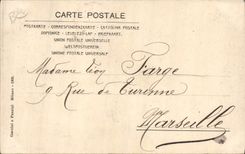 CARTE POSTALE
POSTKARTE - CORRESPONDENZKARTE - CARTOLINA POSTALE
DOPISNICE - LEVELEZŐ-LAP - BRIEFKAART
UNION POSTALE UNIVERSELLE
WELTPOSTVEREIN
UNIONE POSTALE UNIVERSALE
Madame Léon Farge
9 Rue de Turenne
Marseille